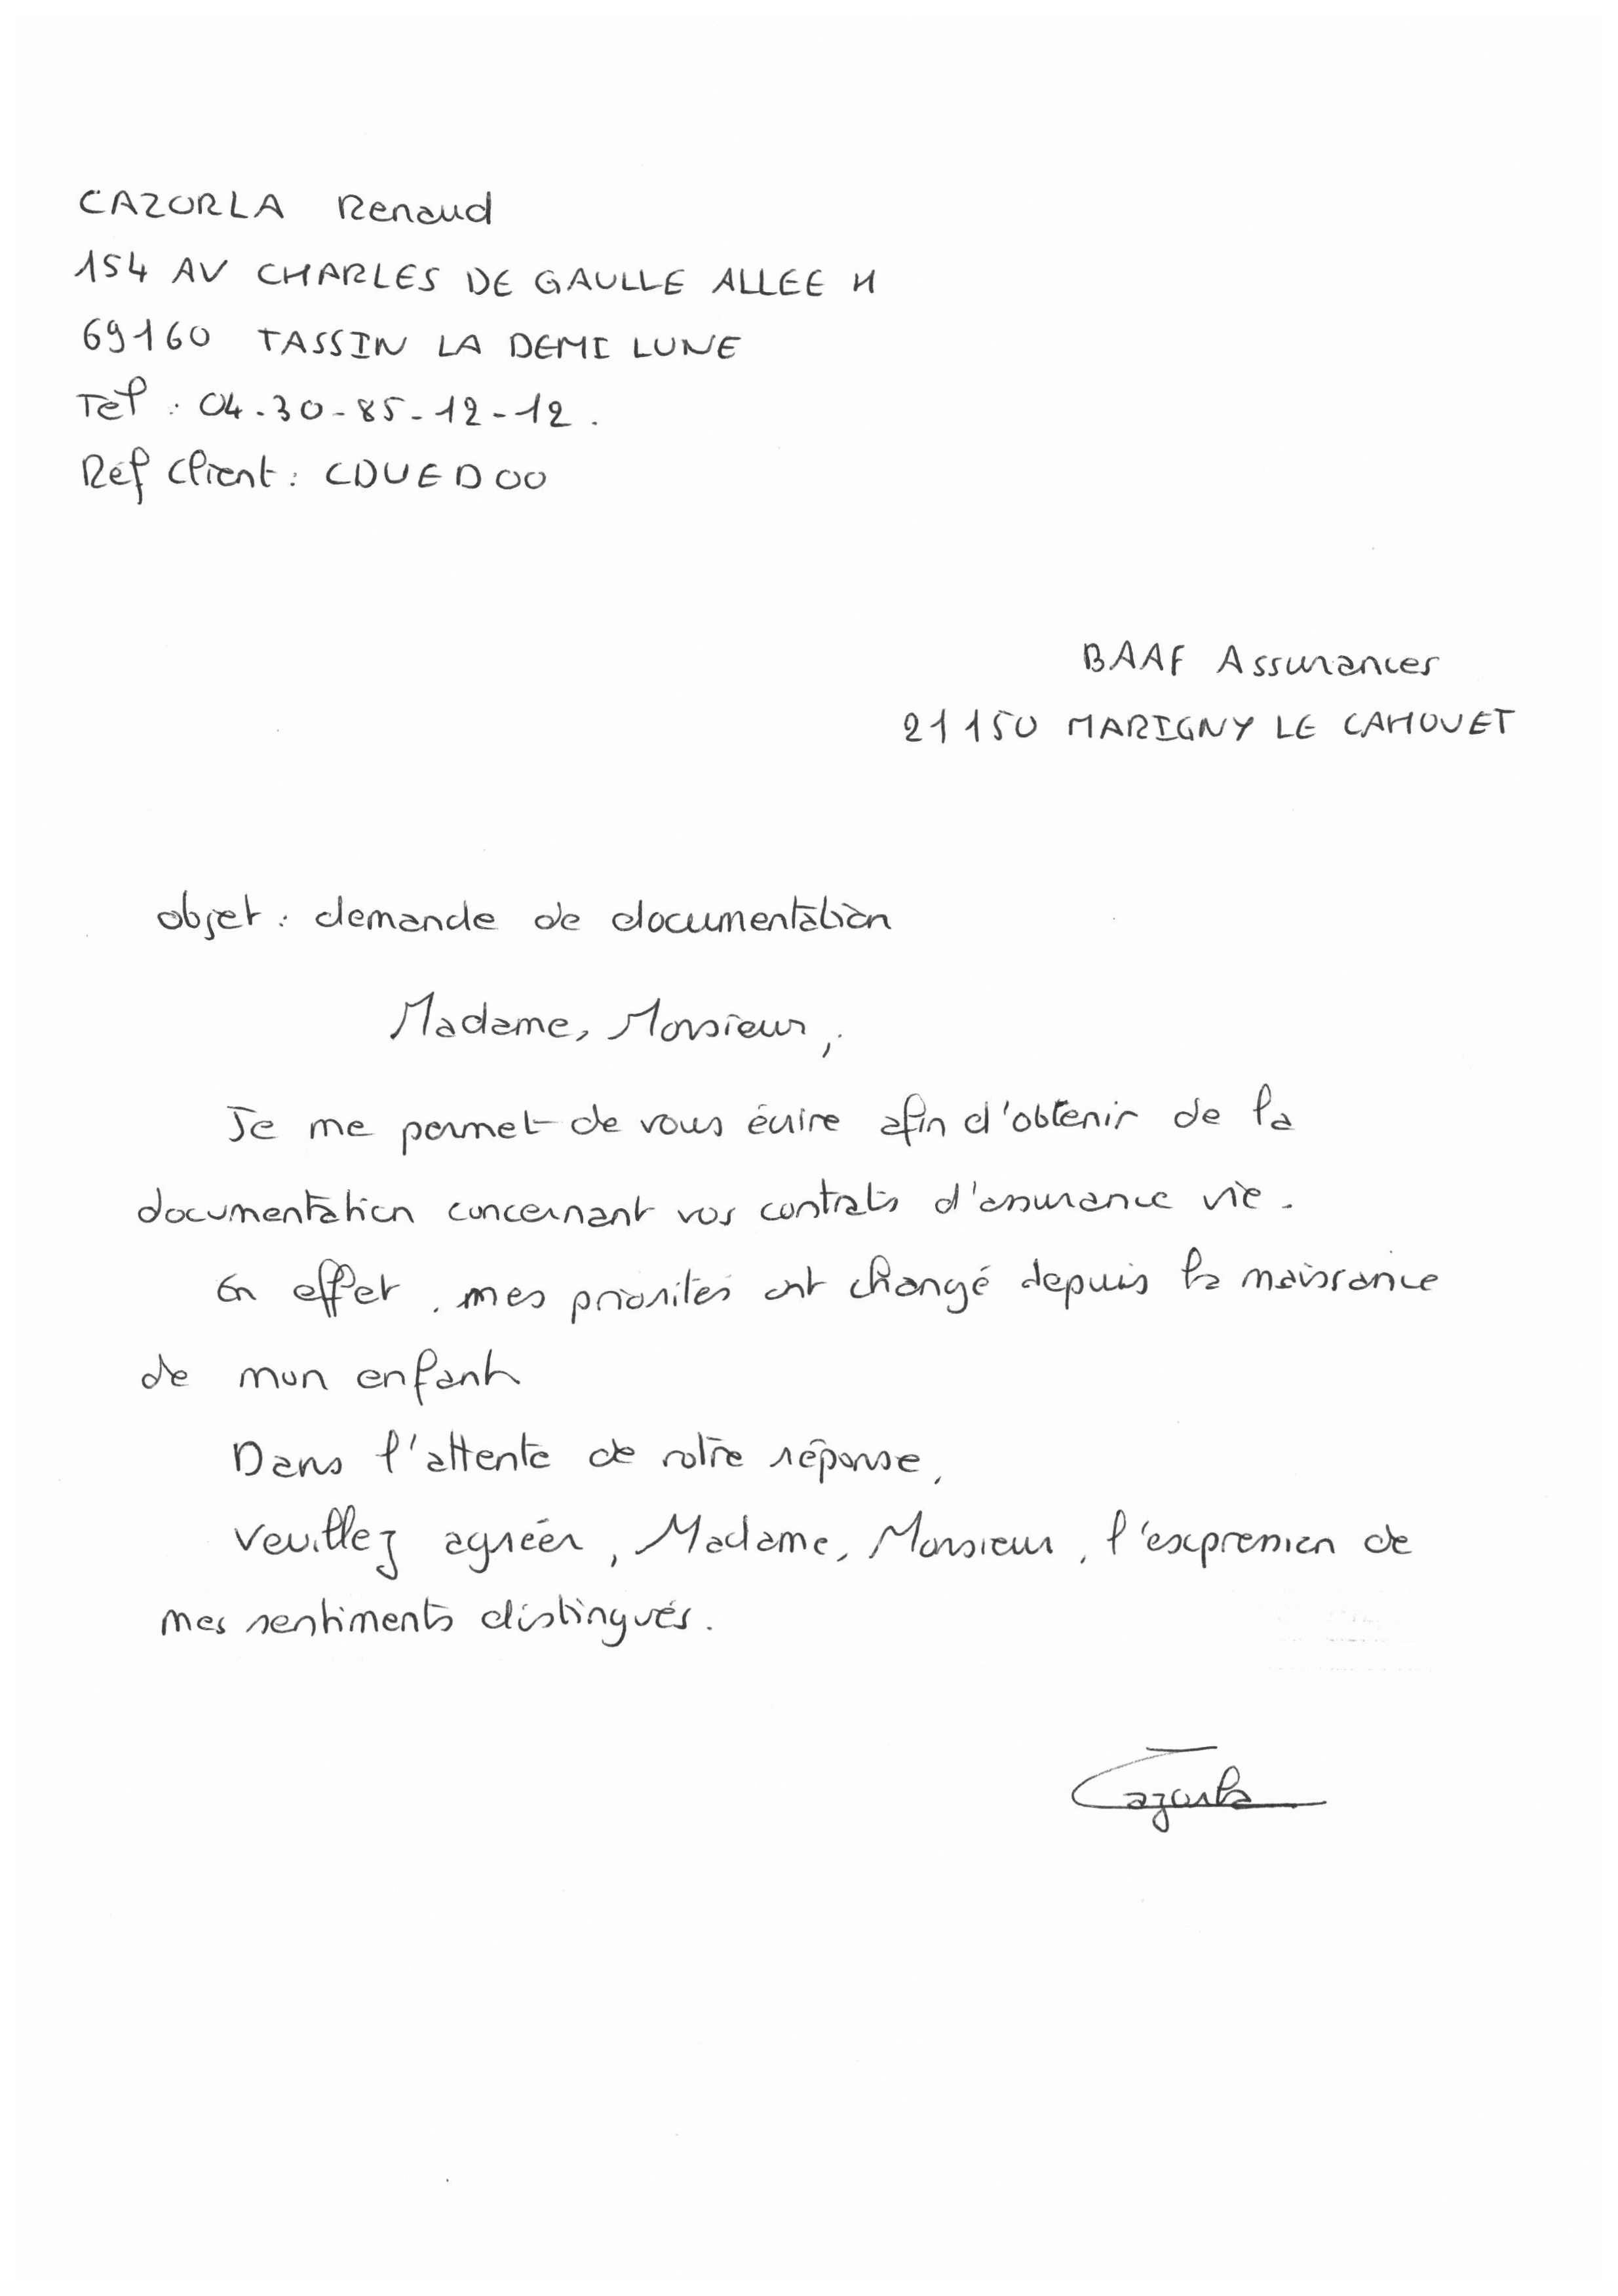 CAZORLA Renaud
154 AV CHARLES DE GAULLE ALLEE H
69160 TASSIN LA DEMI LUNE
Tel : 04-30-85-12-12.
Ref Client : CDUED00
BAAF Assurances
21150 MARIGNY LE CAHOUET
objet : demande de documentation
Madame, Monsieur,
Je me permet de vous écrire afin d'obtenir de la
documentation concernant vos contrats d'assurance vie.
En effet, mes priorités ont changé depuis la naissance
de mon enfant
Dans l'attente de votre réponse,
Veuillez agréer, Madame, Monsieur, l'expression de
mes sentiments distingués.
Cazorla